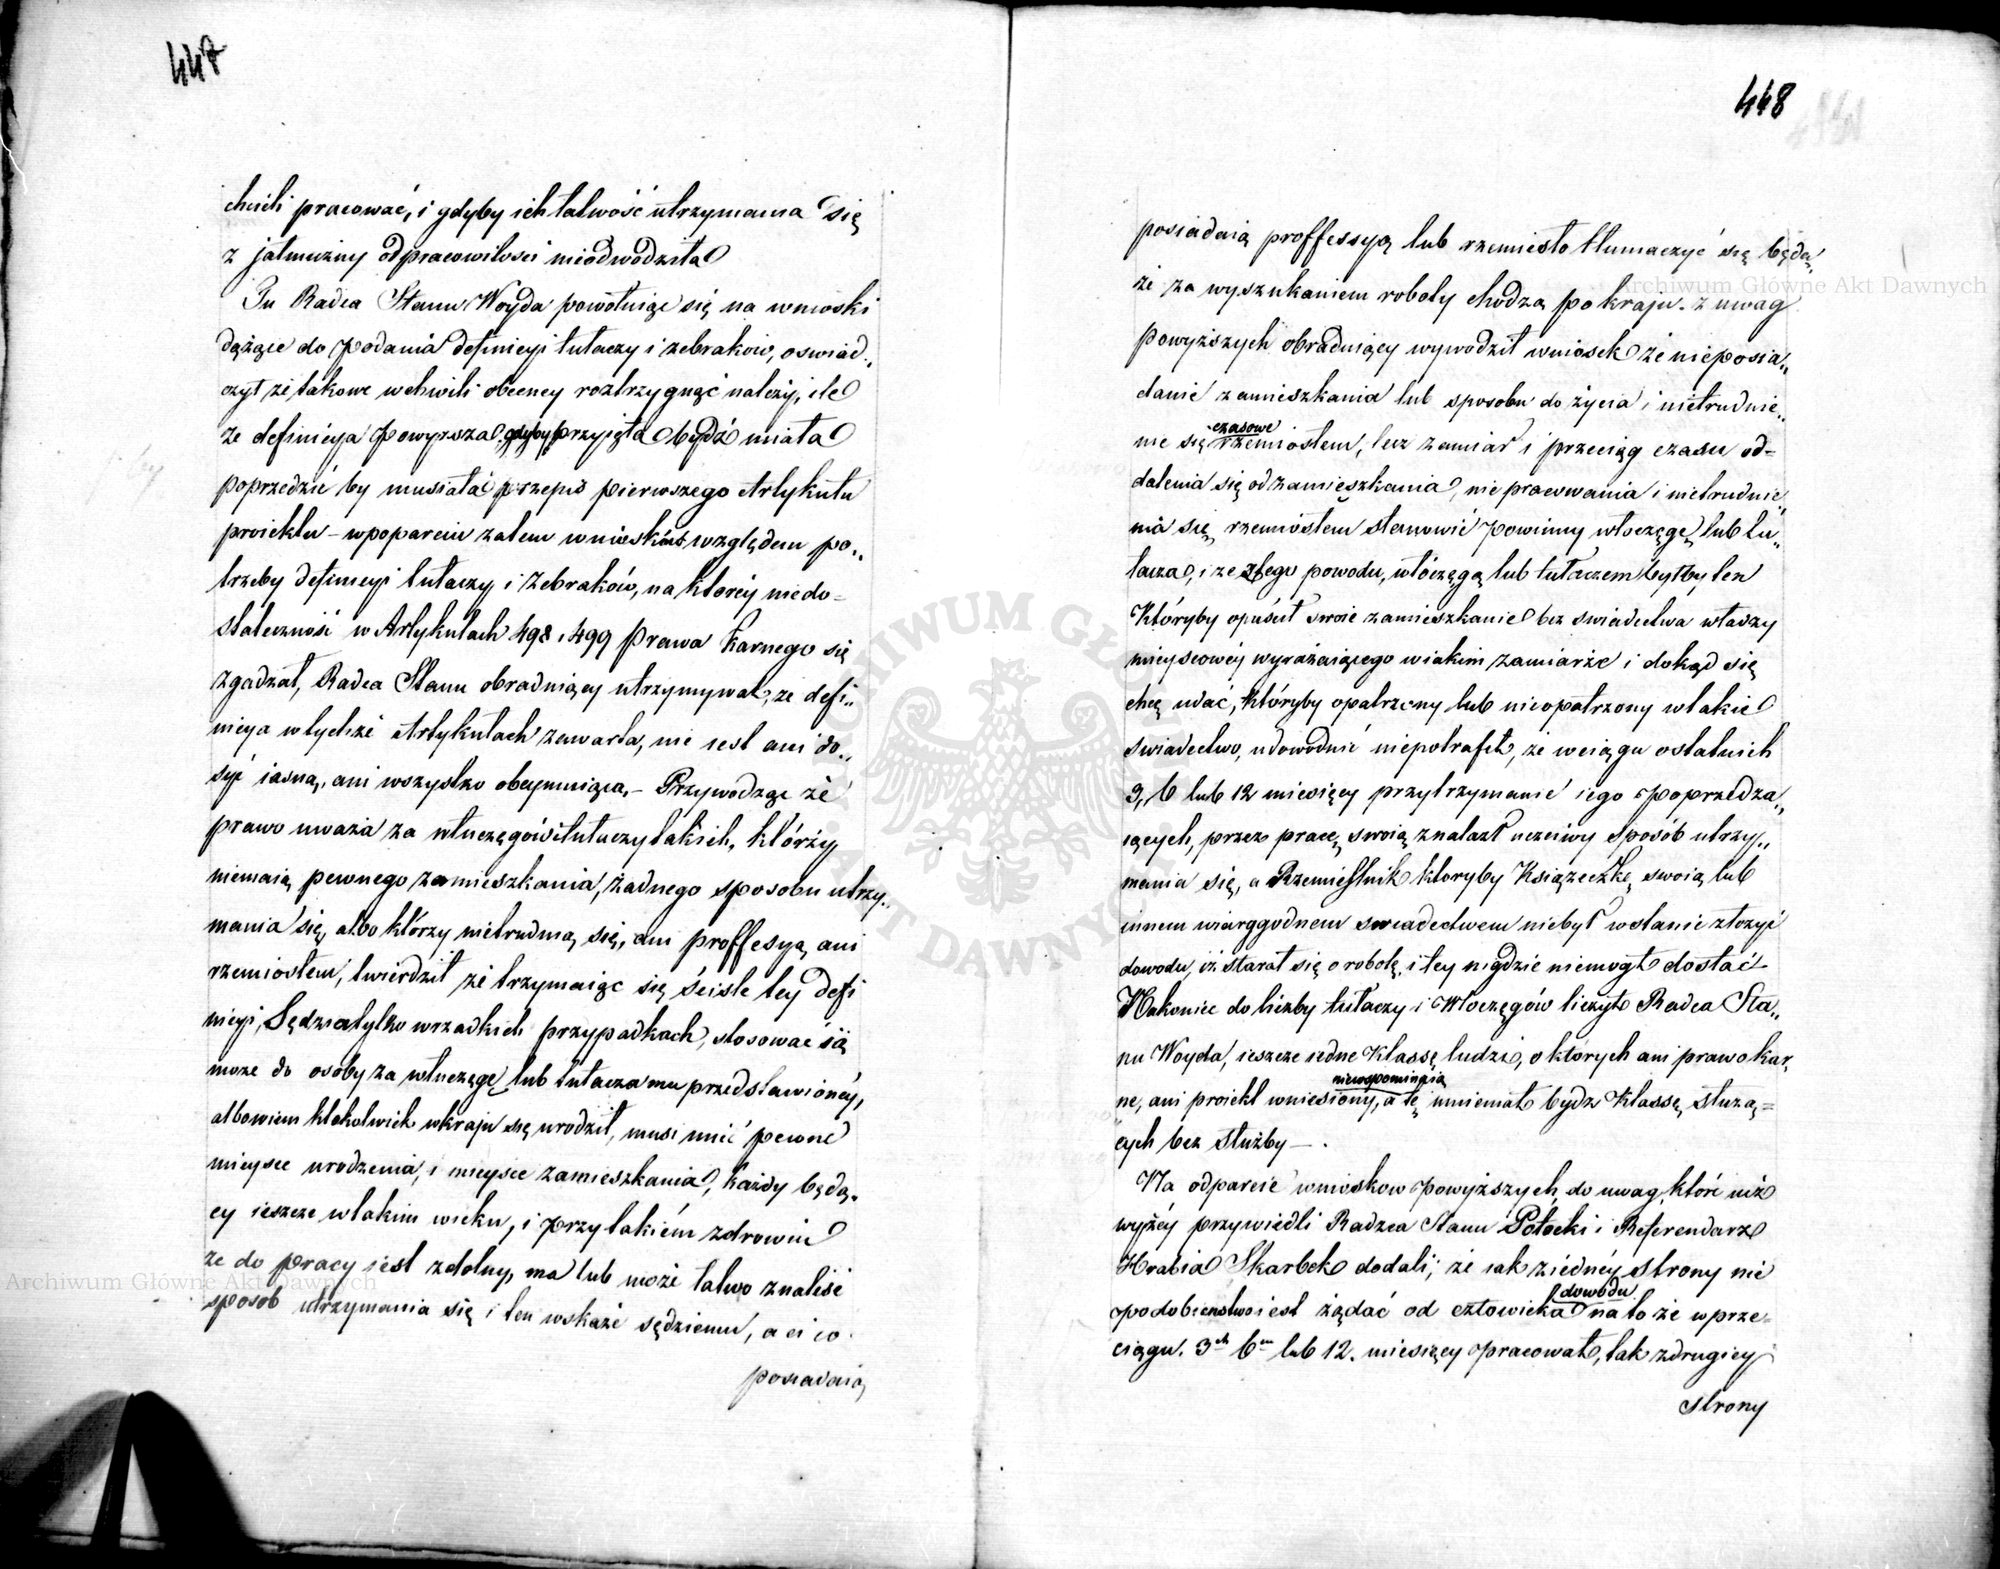 447
chcieli pracować, i gdyby ich łatwość utrzymania się
z jałmużny od pracowitości nieodwodziła
Tu Radca Stanu Woyda powołuiąc się na wnioski
dążące do podania definicyi tułaczy i żebraków, oswiad„
czył że takowe w chwili obecney roztrzygnąć należy, ile
że definicya powyższa gdyby przyięta bydź miała
poprzedzić by musiała przepis pierwszego Artykułu
proiektu – w poparciu zatem wniosków względem po„
trzeby definicyi tułaczy i żebraków, na któréy niedo=
stateczność w Artykułach 498 i 499 Prawa Karnego się
zgadzał, Radca Stanu obraduiący utrzymywał, że defi„
nicya w tychże Artykułach zawarta, nie iest ani do„
syć iasną, ani wszystko obeymuiąca, – Przywodząc że
prawo uważa za włuczęgów i tułaczy takich, którzy
niemaią pewnego zamieszkania, żadnego sposobu utrzy„
mania się, albo którzy nietrudnią się, ani proffesyą ani
rzemiosłem, twierdził że trzymaiąc się ściśle tey defi
nicyi, Sędzia tylko w rzadkich przypadkach, stosować ią
może do osoby za włuczęgę lub tułacza mu przedstawionéy,
albowiem ktokolwiek w kraju się urodził, musi mieć pewne
mieysce urodzenia, i mieysce zamieszkania, każdy będą„
cy ieszcze w takim wieku, i przy takiém zdrowiu
że do pracy iest zdolny, ma lub może łatwo znaleść
sposob utrzymania się i ten wskaże sędziemu, a ci co
posiadaią
448
posiadaią proffessyą lub rzemiosło tłumaczyć się będą,
że za wyszukaniem roboty chodzą po kraju. z uwag
powyższych obraduiący wywodził wniosek że nieposia„
danie zamieszkania lub sposobu do życia i nietrudnie„
nie się czasowe rzemiosłem, lecz zamiar i przeciąg czasu od=
dalenia się od zamieszkania, nie pracowania i nietrudnie„
nia się rzemiosłem stanowić powinny włoczęgę lub tu„
łacza, i ze złego powodu, włóczęgą lub tułaczem byłby ten
Któryby opuścił swoie zamieszkanie bez swiadectwa władzy
mieyscowéy wyrażaiącego w iakim zamiarze i dokąd się
chcę udać, któryby opatrzony lub nieopatrzony w takie
swiadectwo, udowodnić niepotrafił, że w ciągu ostatnich
3, 6 lub 12 miesięcy przytrzymanie iego poprzedza„
iących, przez pracę swoią znalazł uczciwy sposób utrzy„
mania się, a Rzemieślnik ktoryby Książeczkę swoią lub
innem wiarygodnem swiadectwem niebył w stanie złożyć
dowodu, iż starał się o robotę, i tey nigdzie niemogł dostać
Nakoniec do liczby tułaczy i Włoczęgów liczył Radca Sta„
nu Woyda, ieszcze iedne Klassę ludzi, o których ani prawo kar„
ne, ani proiekt wniesiony, niewspominaią a tę mniemał bydz Klassę służą=
cych bez służby – .
Na odparcie wnioskow powyższych, do uwag, które iuż
wyżéy przywiedli Radzca Stanu Potocki i Referendarz
Hrabia Skarbek dodali, że iak z iednéy strony nie
podobienstwo iest żądać od człowieka dowodu na to że w prze=
ciągu. 3ch 6iu lub 12. miesięcy pracował, tak z drugiey
strony
Archiwum Główne Akt Dawnych
Archiwum Główne Akt Dawnych
ARCHIWUM GŁÓWNE AKT DAWNYCH